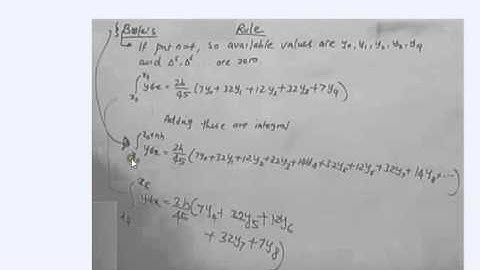 Boole's Rule
If put n=4, so available values are y₀, y₁, y₂, y₃, y₄
and Δ⁵, Δ⁶ .. are zero
∫ₓ₀^x₄ ydx = 2h/45 (7y₀+32y₁+12y₂+32y₃+7y₄)
Adding these are integral
∫ₓ₀^x₀+nh ydx = 2h/45 (7y₀+32y₁+12y₂+32y₃+14y₄+32y₅+12y₆+32y₇+14y₈+...)
∫ₓ₄^x₈ ydx = 2h/45 (7y₄+32y₅+12y₆
+32y₇+7y₈)